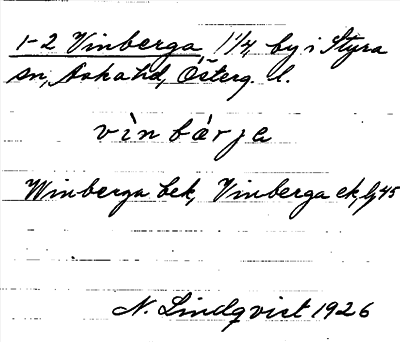 1-2 Vinberga 1 1/4, by i Styra
sn, Aska hd, Österg. l.
vìnbár̀ja
Winberga bek, Vinberga ek, lj 45
N. Lindqvist 1926